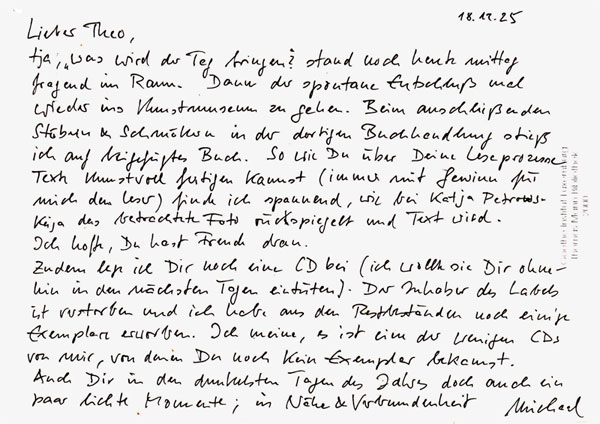 18.12.25
Lieber Theo,
tja, „was wird der Tag bringen? stand noch heute mittag
fragend im Raum. Dann der spontane Entschluß mal
wieder ins Kunstmuseum zu gehen. Beim anschließenden
Stöbern & Schmökern in der dortigen Buchhandlung stieß
ich auf beigefügtes Buch. So wie Du über Deine Leseprozesse
Texte kunstvoll fertigen kannst (immer mit Gewinn für
mich den Leser) finde ich spannend, wie bei Katja Petrows-
kaja das betrachtete Foto rückspiegelt und Text wird.
Ich hoffe, Du hast Freude dran.
Zudem lege ich Dir noch eine CD bei (ich wollte sie Dir ohne-
hin in den nächsten Tagen eintüten). Der Inhaber des Labels
ist verstorben und ich habe aus den Restbeständen noch einige
Exemplare erworben. Ich meine, es ist eine der wenigen CDs
von mir, von denen Du noch kein Exemplar bekamst.
Auch Dir in den dunkelsten Tagen des Jahres doch auch ein
paar lichte Momente; in Nähe & Verbundenheit Michael